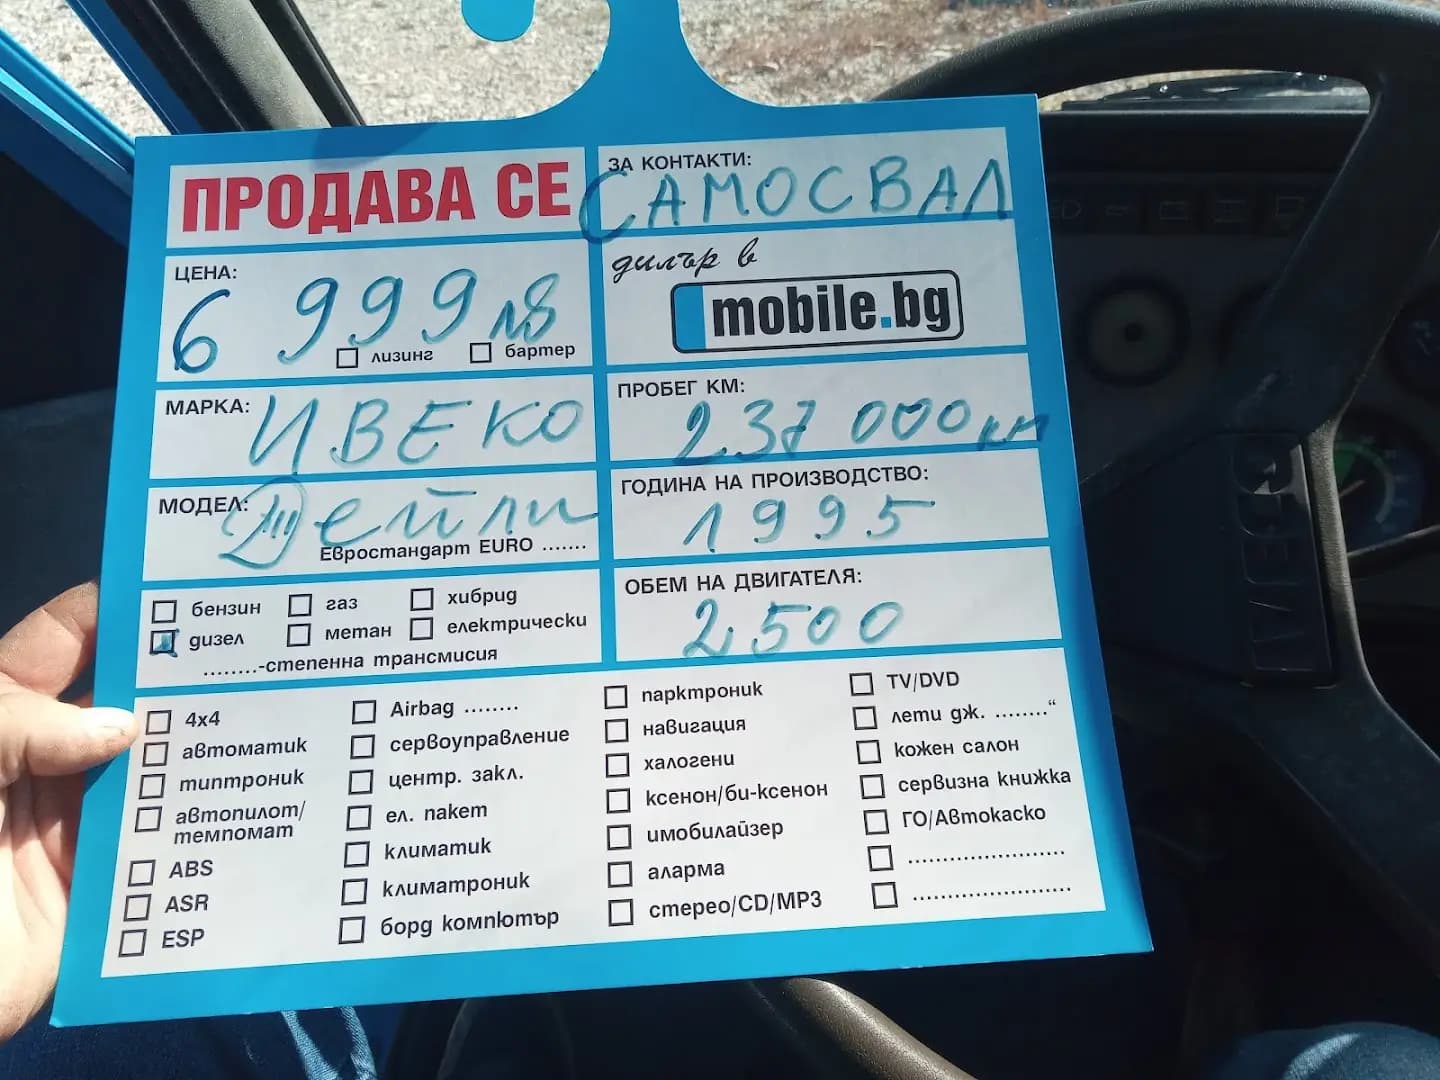 ПРОДАВА СЕ
ЗА КОНТАКТИ:
САМОСВАЛ
ЦЕНА:
6 999 лв
лизинг бартер
дилър в
mobile.bg
МАРКА:
ИВЕКО
ПРОБЕГ КМ:
237 000 км
МОДЕЛ:
Дейли
Евростандарт EURO .......
ГОДИНА НА ПРОИЗВОДСТВО:
1995
ОБЕМ НА ДВИГАТЕЛЯ:
2500
бензин газ хибрид
дизел метан електрически
........-степенна трансмисия
4x4
автоматик
типтроник
автопилот/
темпомат
ABS
ASR
ESP
Airbag ........
сервоуправление
центр. закл.
ел. пакет
климатик
климатроник
борд компютър
парктроник
навигация
халогени
ксенон/би-ксенон
имобилайзер
аларма
стерео/CD/MP3
TV/DVD
лети дж. ........"
кожен салон
сервизна книжка
ГО/Автокаско
........................
........................
IVECO